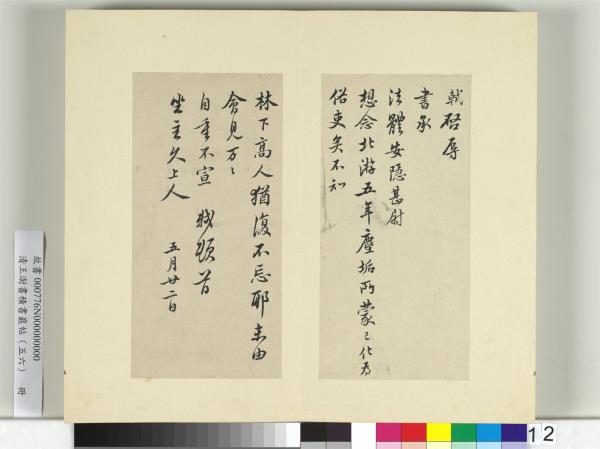 軾啓辱
書承
法體安隱甚尉
想念北游五年塵垢所蒙已化為
俗吏矣不知
林下高人猶復不忘耶未由
會見万〻
自重不宣 軾頓首
坐主久上人
五月廿二日
故書000776N000000000
清王澍書積書巖帖（五六） 冊
12